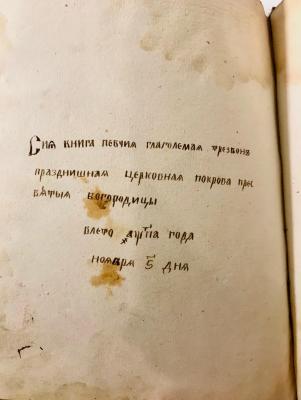 Сия книга певчия глаголемая трезвонъ
празднишная церковная покрова прес
вѣтыя богородицы
влето года
ноября 5 дня